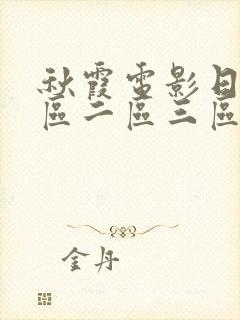 秋霞電影日
區二區三區
金丹